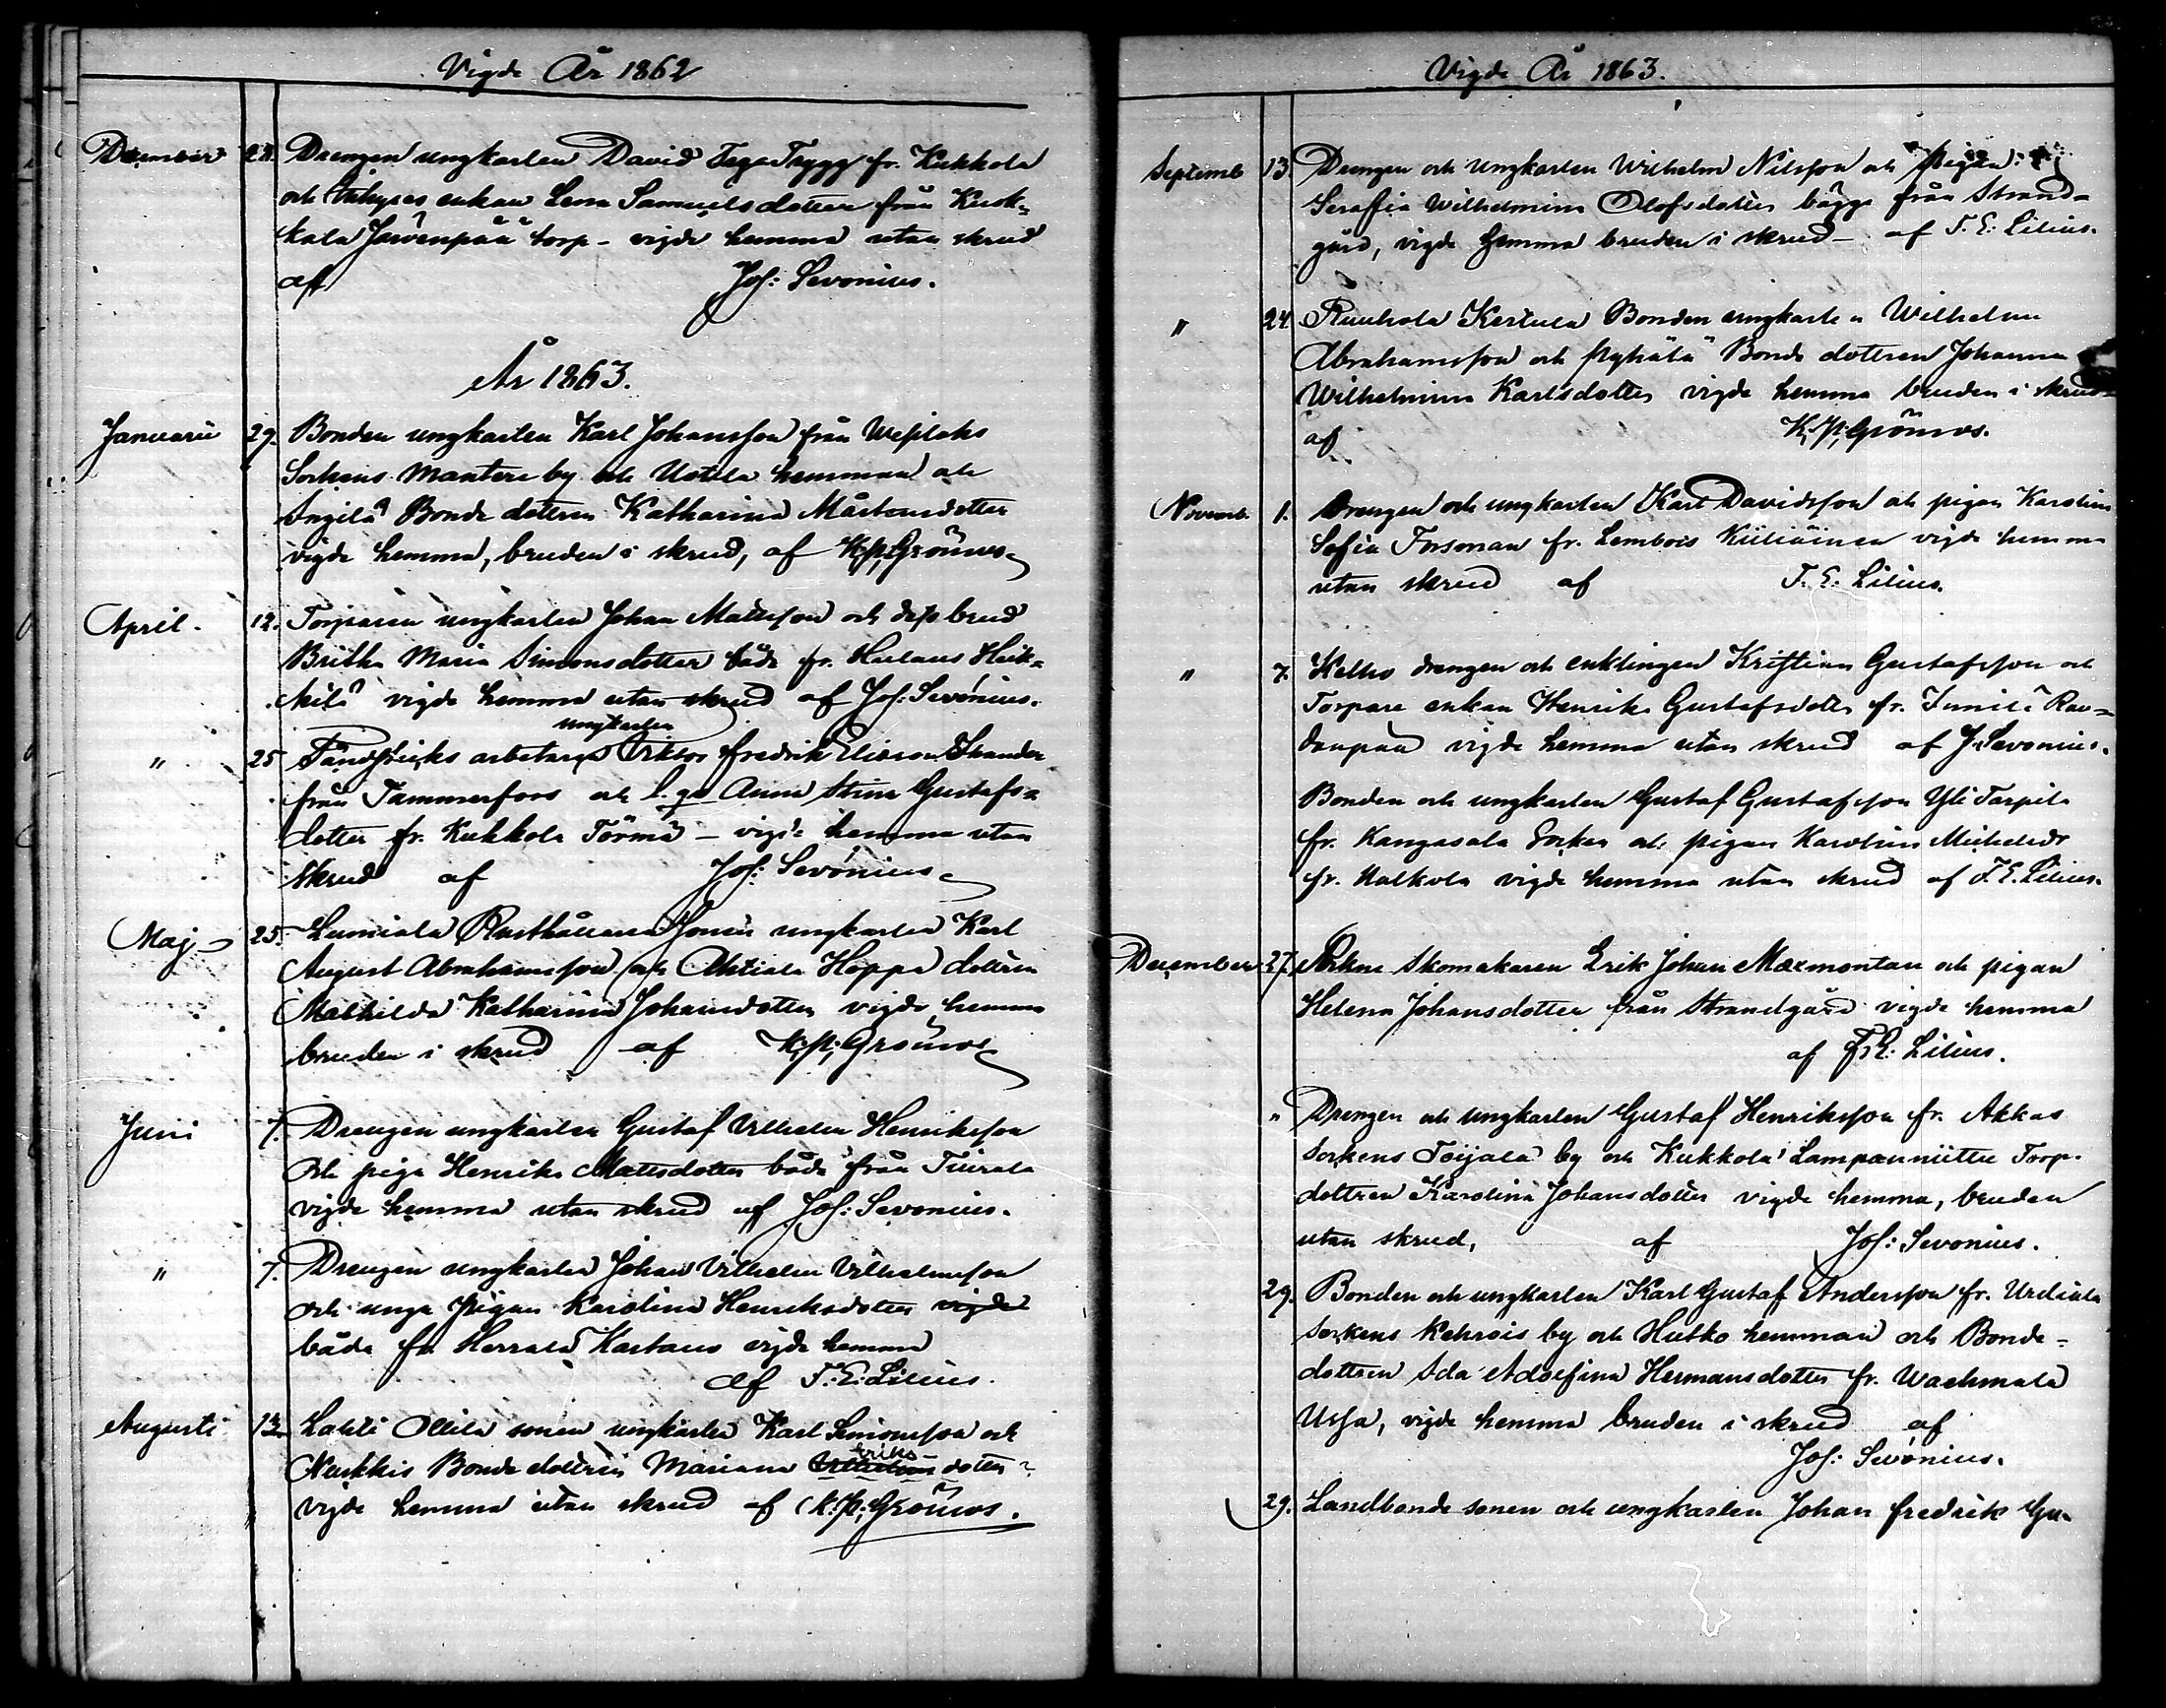 Vigde År 1862
December 28. Drengen ungkarlen David Trygg fr. Kukkola
och Inhyses enkan Lena Samuelsdotter från Kuk-
kola Jawenpää torp - vigde hemma utan skrud
af Jos: Sevonius.
År 1863.
Januarii 29. Bonden ungkarlen Karl Johansson från Wesilaks
Sockens Mantere by och Uotila hemman och
Angila Bonde dottren Katharina Mårtensdotter
vigde hemma, bruden i skrud, af K. P. Grönroos
April. 12. Torparen ungkarlen Johan Mattsson och dess brud
Britha Maria Simonsdotter både fr. Hulaus Heik-
kilä vigde hemma utan skrud af Jos: Sevónius.
ungkarlen
" 25 arbetaren Viktor Fredrik Skander
från Tammerfors och Anna Stina Gustafs-
dotter fr. Kukkola Törmä - vigde hemma utan
skrud af Jos: Sevónius
Maj 25. Lumiala Rusthållare Sonen ungkarlen Karl
August Abrahamsson och Ahtiala Hoppa dottren
Mathilda Katharina Johansdotter vigde hemma
bruden i skrud af K. P. Grönroos
Juni 7. Drengen ungkarlen Gustaf Vilhelm Henriksson
och piga Henrika Mattsdotter både från Tiirala
vigde hemma utan skrud af Jos: Sevonius.
" 7. Drengen ungkarlen Johan Vilhelm Vilhelmsson
och unga pigan Karolina Henriksdotter vigde
båda fr Herrala Kartano vigde hemma
af F. E. Lilius.
Augusti 12. Lahti Ollila sonen ungkarlen Karl Simonsson och
Eriks
Neukkis Bonde dottren Mariana Vilhelms dotter
vigde hemma utan skrud af K. P. Grönroos.
Vigde År 1863.
Septemb 13. Drengen och ungkarlen Wilhelm Nilsson och Pigan
Serafia Wilhelmina Olofsdotter bägge från Strand-
gård, vigde hemma bruden i skrud - af F. E. Lilius.
" 24. Ruuhola Kertula Bonden ungkarlen Wilhelm
Abrahamsson och Pyhälä Bonde dottren Johanna
Wilhelmina Karlsdotter vigde hemma bruden i skrud
af K. P. Grönroos.
Novemb. 1. Drengen och ungkarlen Karl Davidsson och pigan Karolina
Sofia Forsman fr. Lembois Kiiliäinen vigde hemma
utan skrud af F. E. Lilius.
" 7. Kelho drengen och enklingen Kristian Gustafsson och
Torpare enkan Henrika Gustafsdotter fr. Junnila Rau-
danpää vigde hemma utan skrud af J. Sevonius.
Bonden och ungkarlen Gustaf Gustafsson Yli Tarpila
fr. Kangasala Socken och pigan Karolina Michelsdr
fr. Nalkola vigde hemma utan skrud af F. E. Lilius.
December 27. Sockne Skomakaren Erik Johan Marmontan och pigan
Helena Johansdotter från Strandgård vigde hemma
af F. E. Lilius.
" Drengen och ungkarlen Gustaf Henriksson fr. Akkas
Sockens Toijala by och Kukkola Lampenniittu Torp-
dottren Karolina Johansdotter vigde hemma, bruden
utan skrud, af Jos: Sevonius.
29. Bonden och ungkarlen Karl Gustaf Andersson fr. Urdiala
Sockens Kehrois by och Hutko hemman och Bonde-
dottren Ida Adolfina Hermansdotter fr. Wachmala
Ussa, vigde hemma bruden i skrud af
Jos: Sevónius.
29. Landbonde sonen och ungkarlen Johan Fredrik Gu-